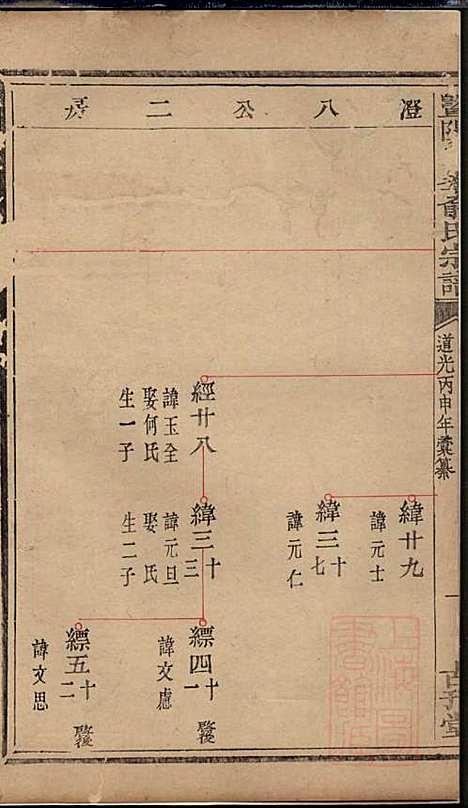 澄八公二房
暨陽
氏宗譜
道光丙申年彙纂
一
緯廿九
諱元士
緯三十七
諱元仁
經廿八
諱玉全
娶何氏
生一子
緯三十三
諱元旦
娶 氏
生二子
縹四十一
後
諱文慮
縹五十二
後
諱文思